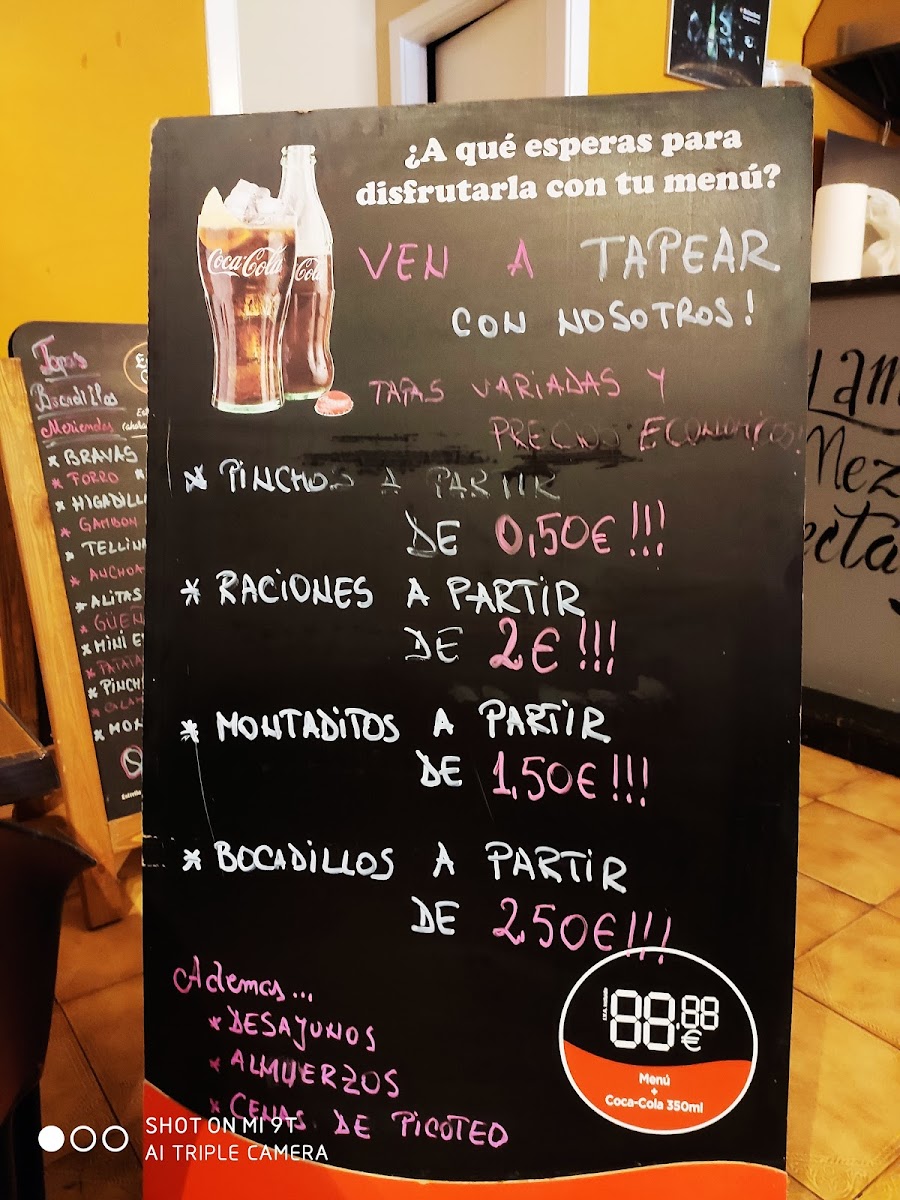 ¿A qué esperas para
disfrutarla con tu menú?
Coca-Cola
VEN A TAPEAR
CON NOSOTROS!
TAPAS VARIADAS Y
PRECIOS ECONOMICOS!
* PINCHOS A PARTIR
DE 0,50€!!!
* RACIONES A PARTIR
DE 2€!!!
* MONTADITOS A PARTIR
DE 1,50€!!!
* BOCADILLOS A PARTIR
DE 2,50€!!!
Ademas...
* DESAYUNOS
* ALMUERZOS
* CENAS DE PICOTEO
88,88
€
Menú
+
Coca-Cola 350ml
Tapas
Bocadillos
Meriendas
* BRAVAS
* FORRO
* HIGADILL
* GAMBON
* TELLINA
* ANCHOA
* ALITAS
* GÜEÑ
* MINI E
* PATATA
* PINCH
* CALAM
* MON
Lam
Mez
ecta
SHOT ON MI 9T
AI TRIPLE CAMERA